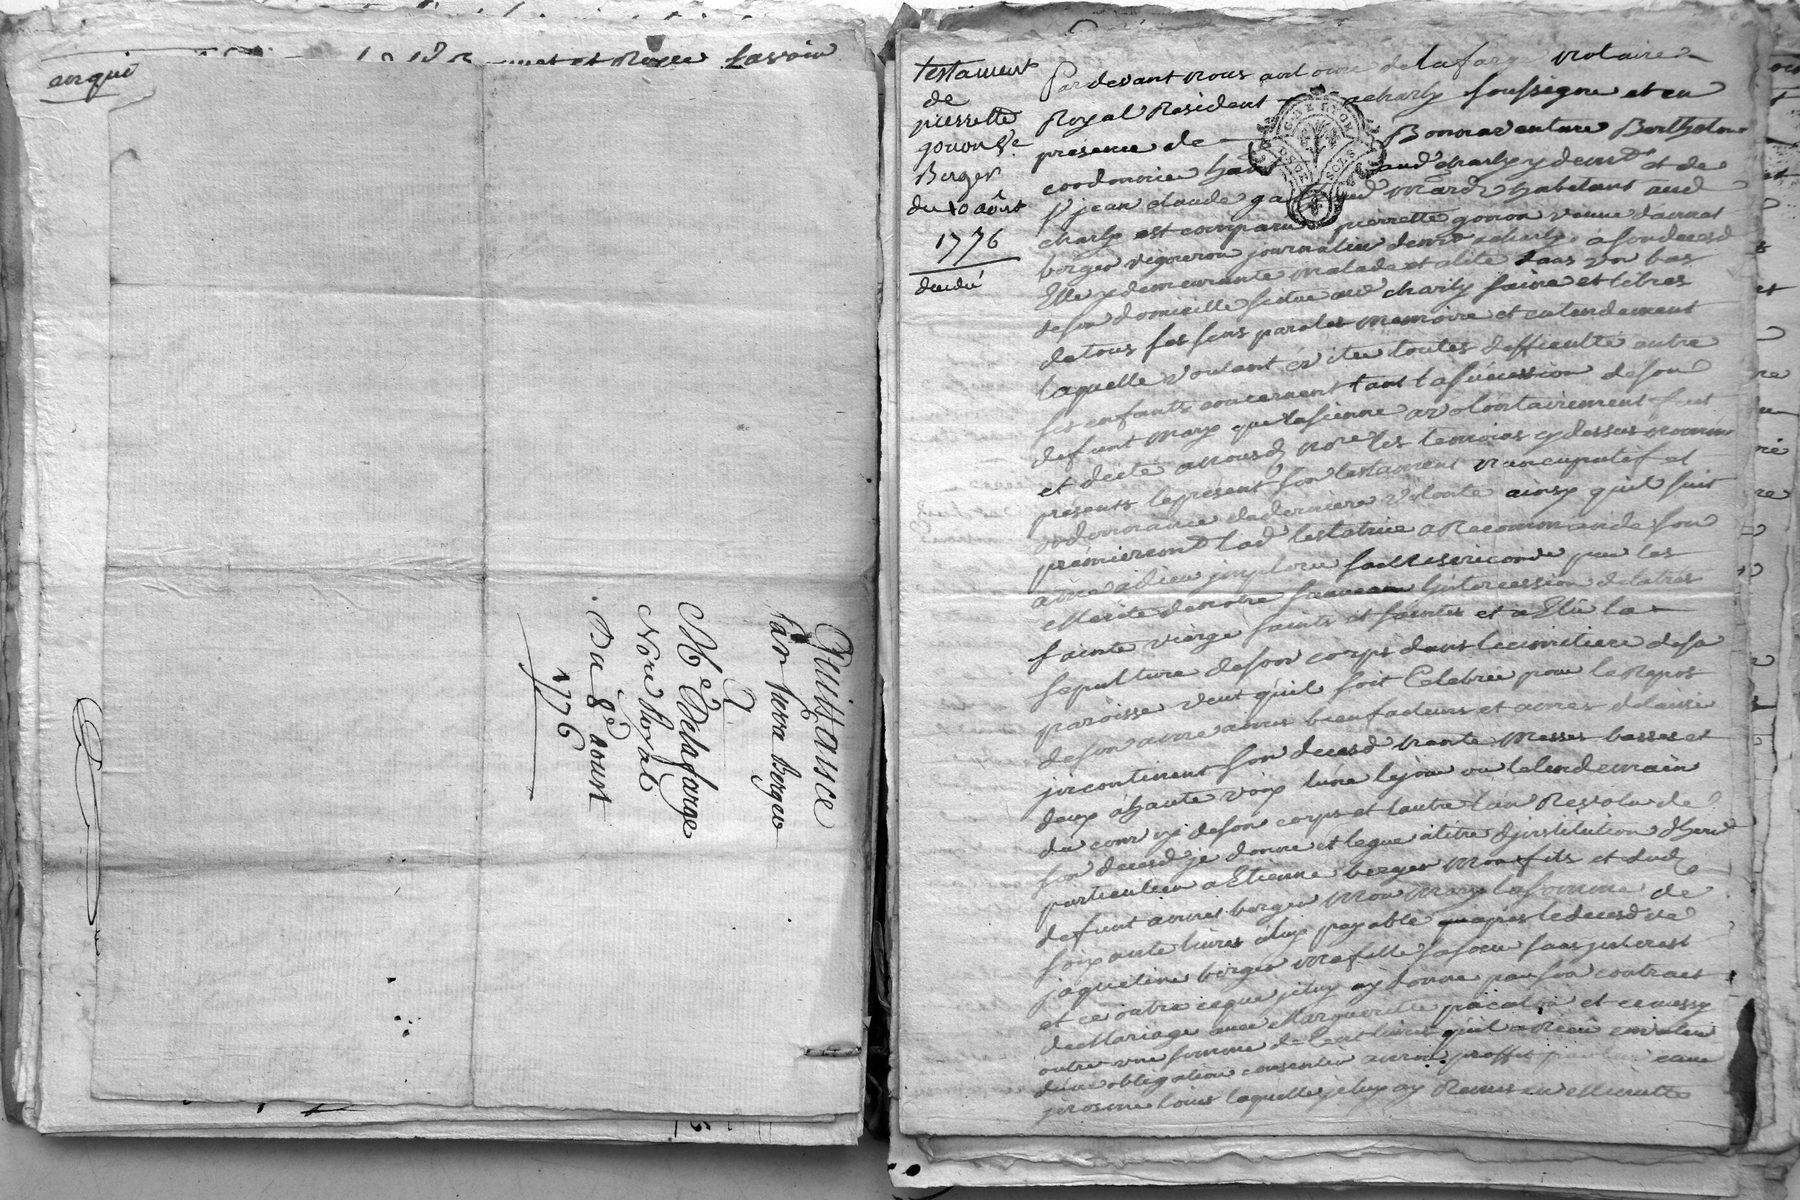 enqué
et Roze Savoir
Quittance
Par Pierre Berger
A
Me Delafarge
Nore Royal
Du 8e aoust
1776
testament
de
pierrette
gonon Ve
Berger
du 10 août
1776
Par devant nous antoine delafarge notaire
Royal Resident a charly soussigné et en
presence de Bonnaventure Berthelon
cordonnier aud charly y demt et de
sr jean claude md habitant aud
charly est comparue pierrette gonon veuve dannet
berger vigneron journalier demt a charly a son deceds
Elle y demeurante malade et alité dans un bas
de son domicille scitué aud charly saine et libres
de tous ses sens paroles memoire et entendement
laquelle voulant eviter toutes difficulté entre
ses enfants concernent tant la succession de son
defunt mary que la sienne a volontairement fait
et dicté a nousd nore les temoins cy dessus nommé
presents le present son testament nuncupatif et
ordonnance de derniere volonté ainsy quil suit
premierement lad testatrice a Recommandé son
ame a dieu imploré sa Misericorde par les
Merite de notre sauveur Lintercession de la tres
sainte vierge saints et saintes et a Elu la
sepulture de son corps dans le cimetiere de sa
paroisse veut quil soit Celebrée pour le Repos
de son ame amis bienfaiteurs et ames delaissé
incontinent son deceds trante Messes basses et
deux a haute voix lune le jour ou le lendemain
du convoy de son corps et lautre lan Revolu de
son deceds je donne et legue a titre djnstitution dheri
particulier a Etienne berger Mon fils et dud
defunt annet berger Mon Mary la somme de
soixante livres a luy payable apres le deceds de
jaqueline berger ma fille sa soeur sans jnterest
et ce outre ce que je luy ay donné par son contract
de Mariage avec Marguerite et ce aussy
outre une somme de livres quil a Recu
dune obligation consentie a mon proffit par
louis laquelle je luy ay Remis en Minutte